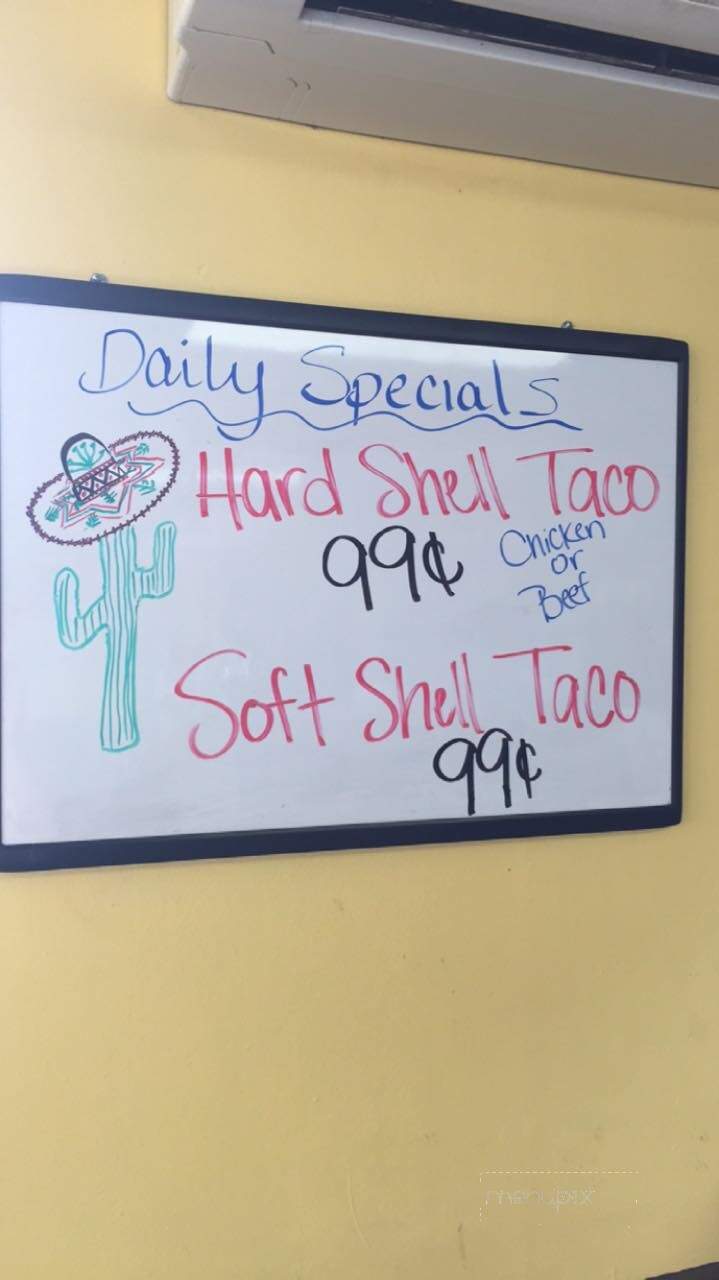 Daily Specials
Hard Shell Taco
99¢
Chicken
or
Beef
Soft Shell Taco
99¢
menupix